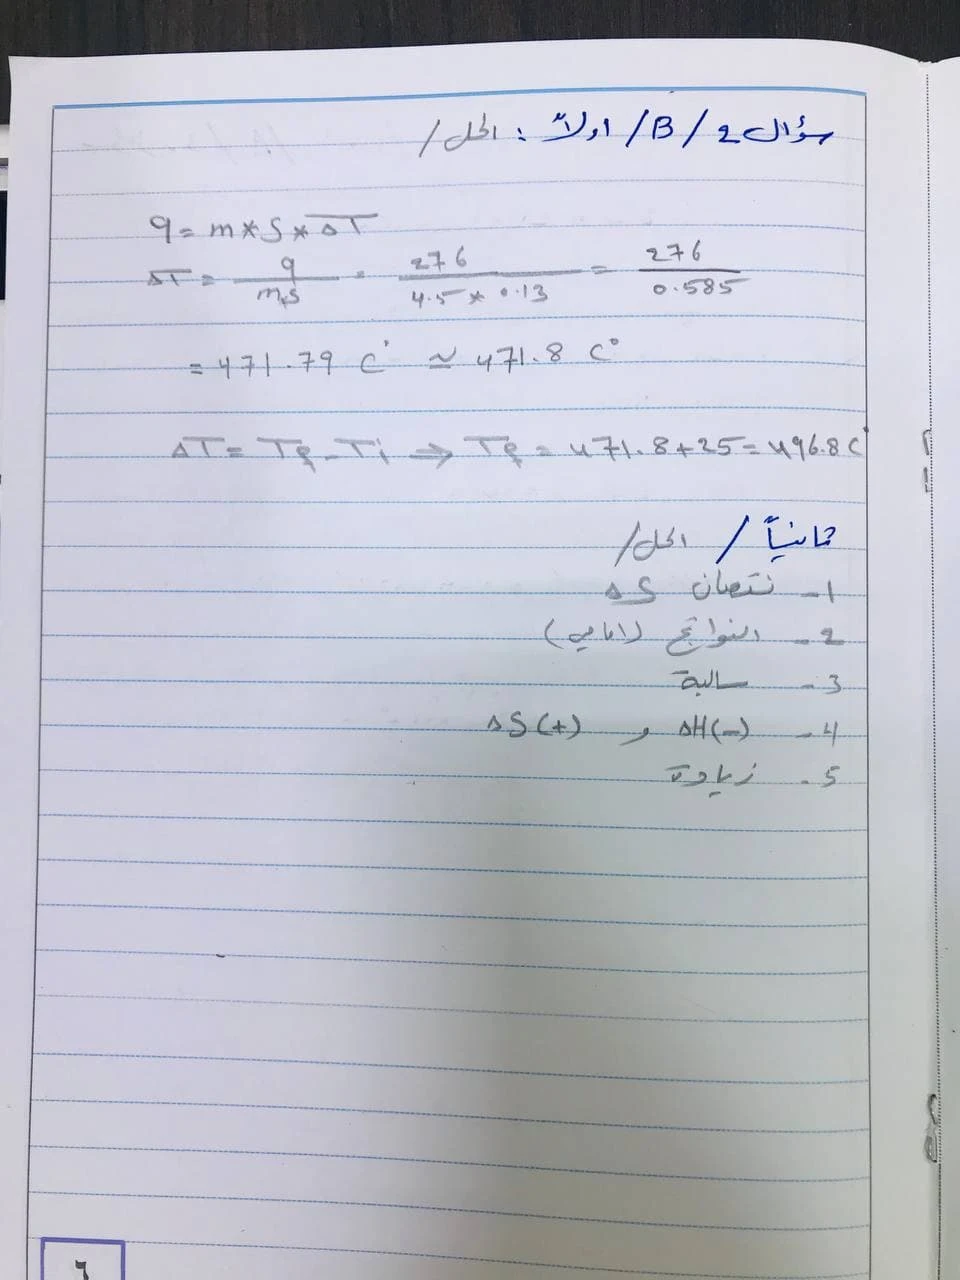 سؤال 2 / B / اولاً : الحل /
q = m * S * ΔT
ΔT = q / m*S = 276 / 4.5 * 0.13 = 276 / 0.585
= 471.79 C° ≃ 471.8 C°
ΔT = Tf - Ti ⇒ Tf = 471.8 + 25 = 496.8 C°
ثانياً / الحل /
1- نقصان ΔS
2- النواتج (امامي)
3- سالبة
4- ΔH(-) و ΔS(+)
5- زيادة
٦